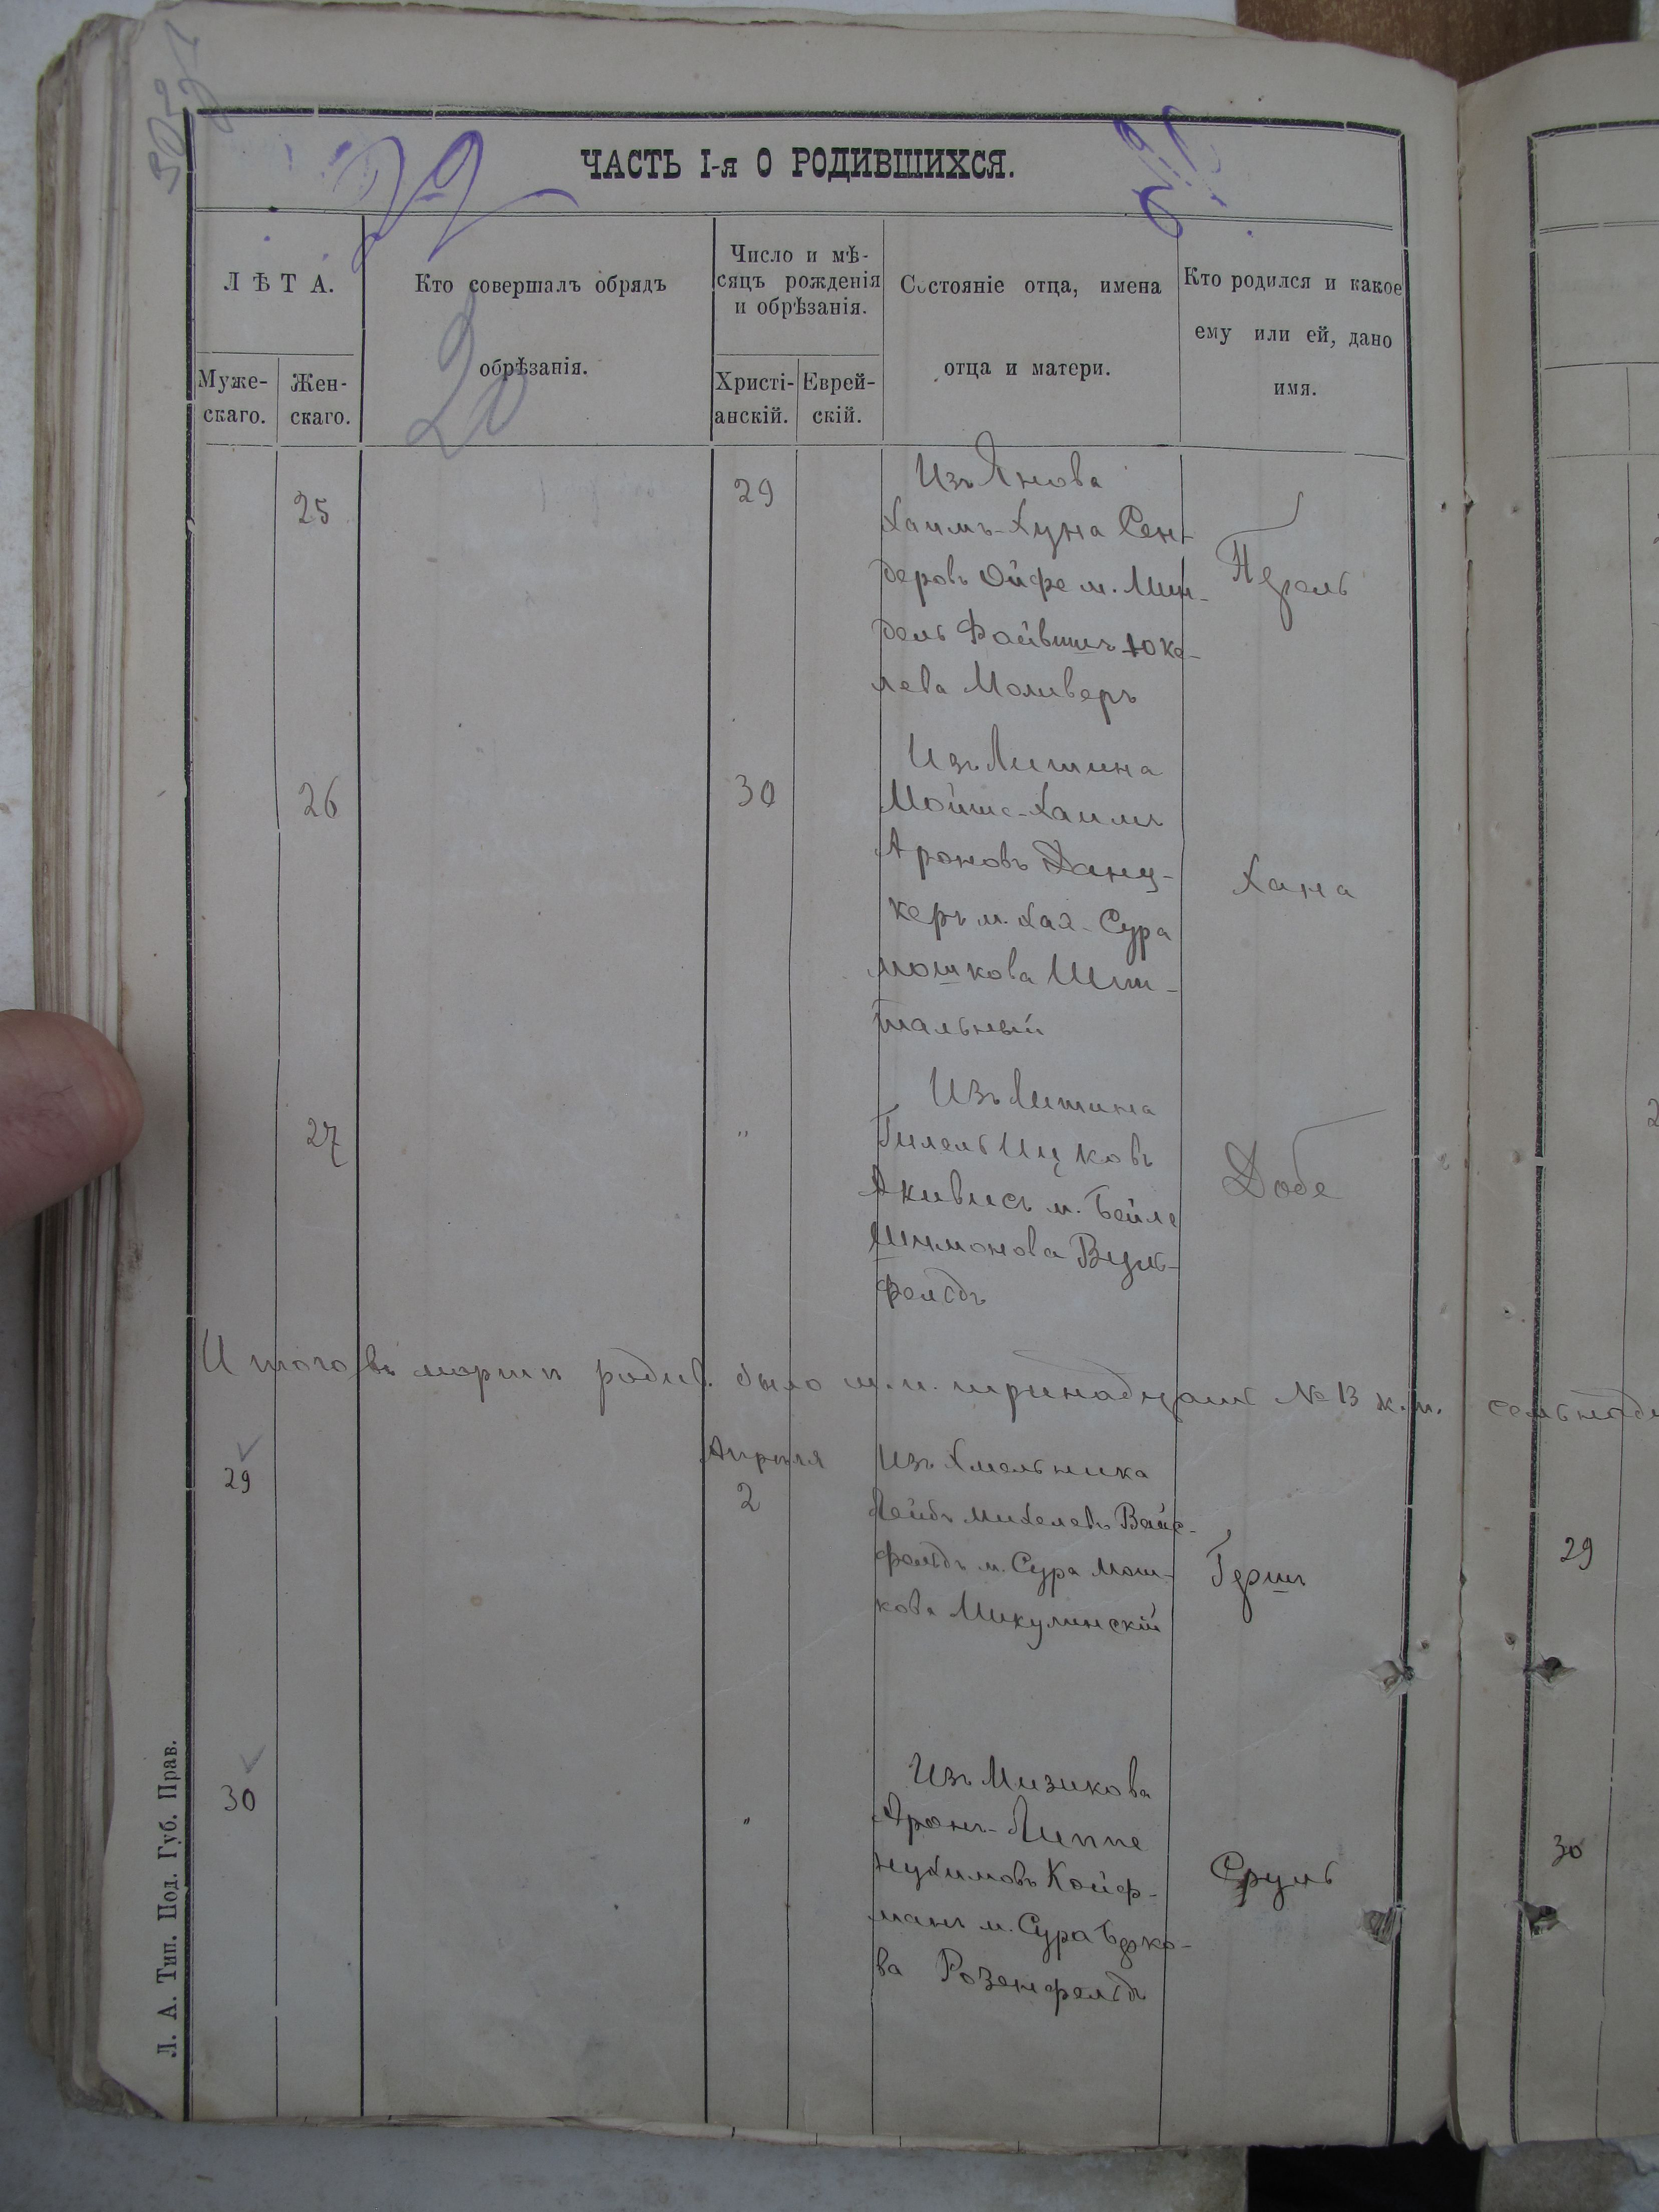 ЧАСТЬ I-я О РОДИВШИХСЯ.
ЛѢТА.
Муже-
скаго.
Жен-
скаго.
Кто совершалъ обрядъ
обрѣзанія.
Число и мѣ-
сяцъ рожденія
и обрѣзанія.
Христі-
анскій.
Еврей-
скій.
Состояніе отца, имена
отца и матери.
Кто родился и какое
ему или ей, дано
имя.
20
25
29
Изъ Янова
Хаимъ-Хуна Сен-
деровъ Ойфе м. Мин-
дель Файвишъ Юке-
лева Моливеръ
Перель
26
30
Изъ Литина
Мойше-Хаимъ
Ароновъ Данц-
керъ м. Хая-Сура
мошкова Шпи-
тальный
Хана
27
"
Изъ Литина
Гилель Ицковъ
Акивисъ м. Бейле
Шимонова Вуль-
фельдъ
Добе
Итого въ мартѣ родив. было м.п. тринадцать № 13 ж.п.
29
Апрѣля
2
Изъ Хмельника
Лейбъ михелевъ Вайс-
фельдъ м. Сура Мош-
кова Микулинскій
Гершъ
30
"
Изъ Мизикова
Аронъ-Липпе
нухимовъ Койф-
манъ м. Сура Берко-
ва Розенфельдъ
Сруль
Л. А. Тип. Под. Губ. Прав.
29
30